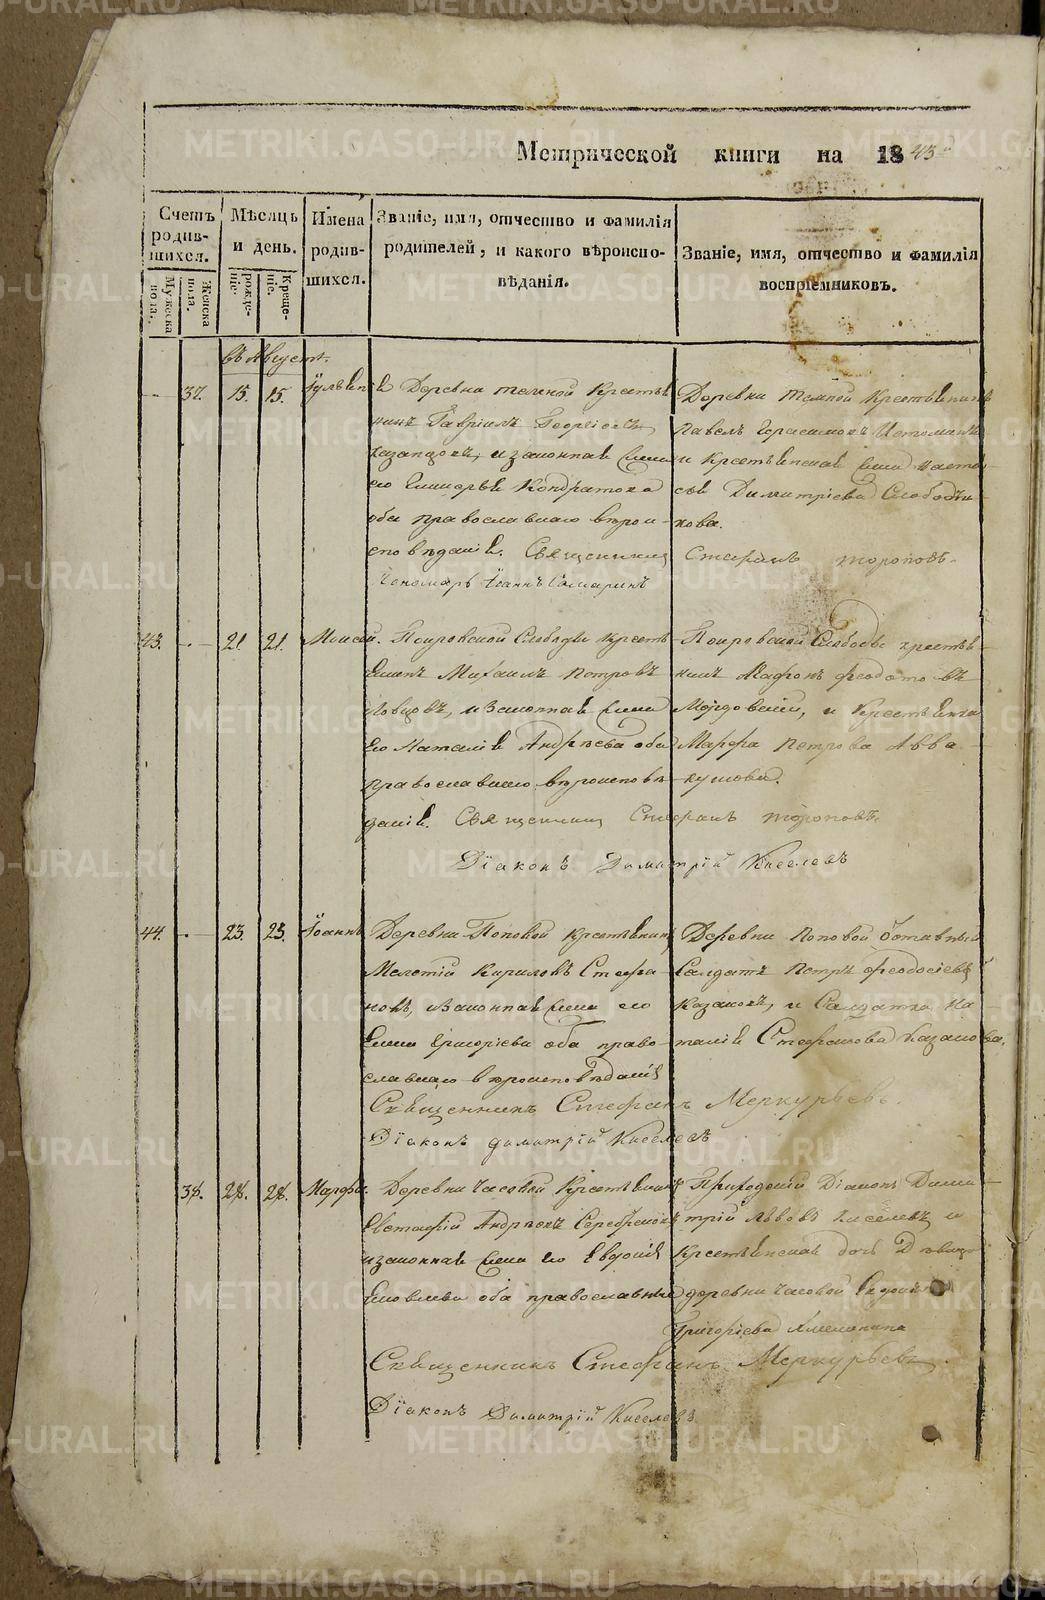 Метрической книги на 1843
Счетъ родившихся.
Мужеска пола.
Женска пола.
Мѣсяцъ и день.
рожденіе.
Крещеніе.
Имена родившихся.
Званіе, имя, отчество и фамилія
родителей, и какого вѣроиспо-
вѣданія.
Званіе, имя, отчество и фамилія
воспріемниковъ.
въ Августѣ.
37. 15. 15.
Деревни Темной Крестья
нинъ Гавріилъ Георгіевъ
Казанцовъ, и законная жена
его Гликерья Кондратова
оба православнаго вѣрои-
сповѣданія. Священникъ Стефанъ Тороповъ.
Пономарь Іоаннъ
Деревни Темной Крестьянинъ
Павелъ Герасимовъ Истоминъ
и Крестьянская жена Наста-
сья Димитріева Слободчи-
кова.
43. 21. 21. Моисей.
Покровской Слободы Крестья
нинъ Михаилъ Петровъ
Ловцовъ, и Законная жена
его Наталія Андреева оба
православнаго вѣроисповѣ
данія. Священникъ Стефанъ Тороповъ.
Діаконъ Димитрій Киселевъ
Покровской Слободы крестья-
нинъ Феодотовъ
Мордовскій, и Крестьянка
Марфа Петрова Авва-
кумова.
44. 23. 23. Іоаннъ
Деревни Поповой крестьянинъ
Мелетій Кириловъ Стефа-
новъ, и Законная жена его
Елена Григорьева оба право-
славнаго вѣроисповѣданія
Священникъ Стефанъ Меркурьевъ.
Діаконъ Димитрій Киселевъ
Деревни Поповой Отставный
Салдатъ Петръ Феодосіевъ
Казаковъ, и Салдатка На-
талія Стефанова Казакова.
38. 28. 28. Марфа.
Деревни Часовой Крестьянинъ
Евстафій Андреевъ Серебряковъ
и законная жена его Евдокія
Яковлева оба православные
Священникъ Стефанъ Меркурьевъ
Діаконъ Димитрій Киселевъ
Приходскій Діаконъ Дими-
трій Львовъ Киселевъ и
Крестьянская дочь Дѣвица
деревни Часовой Евдокія
Григорьева
METRIKI.GASO-URAL.RU